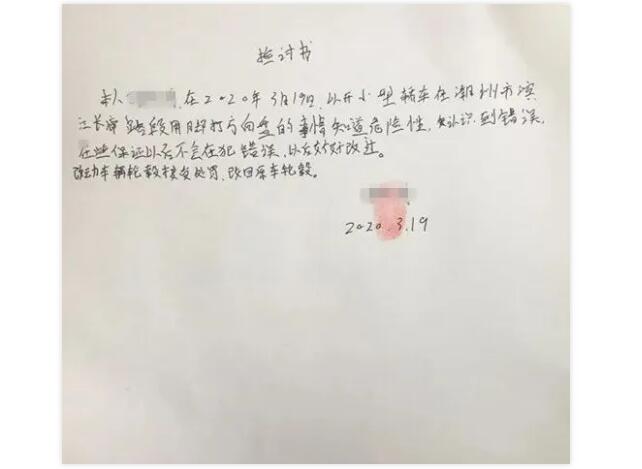 检讨书
本人 在2020年3月19日,以开小型轿车在潮州市滨
江长廊路段用脚打方向盘的事情知道危险性,知认识到错误,
在此保证以后不会在犯错误,以后好好改进。
改动车辆轮毂接受处罚,改回原车轮毂。
2020.3.19